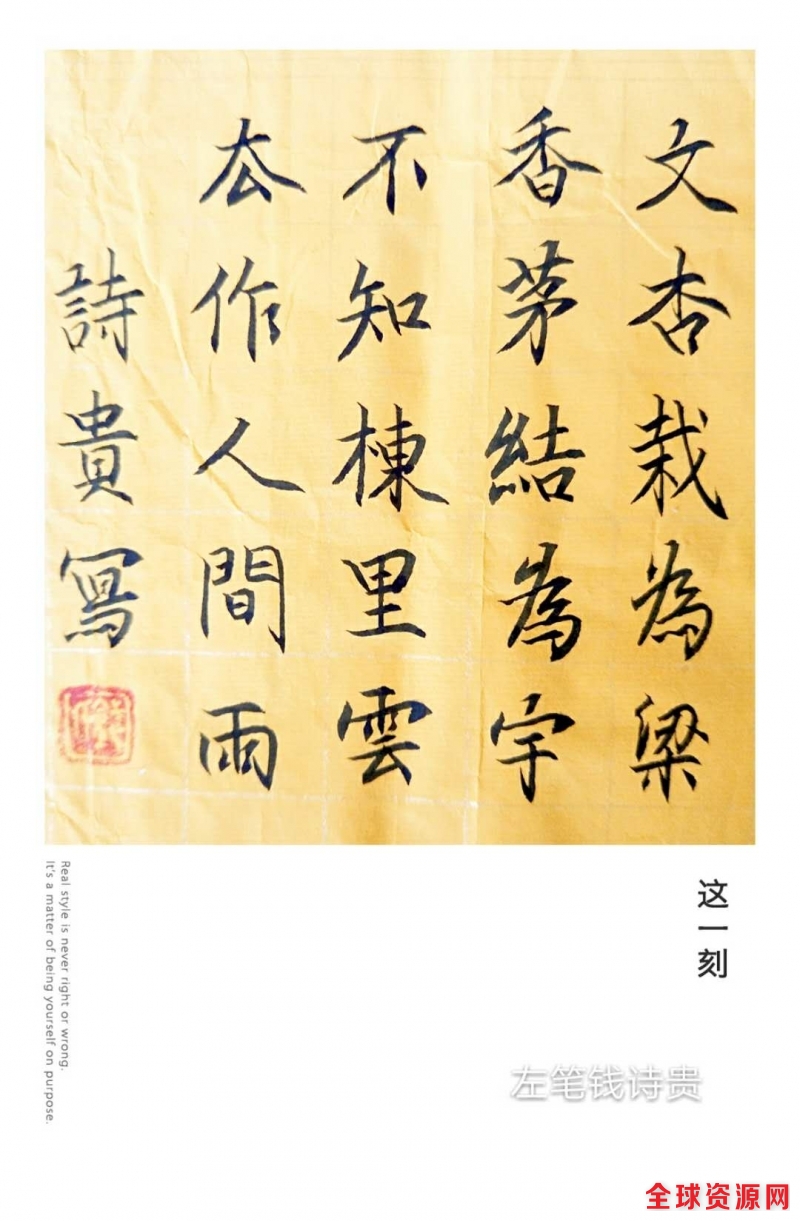 文杏栽為梁
香茅結為宇
不知棟里雲
厺作人間雨
詩貴寫
这一刻
Real style is never right or wrong.
It's a matter of being yourself on purpose.
左笔钱诗贵
全球资源网